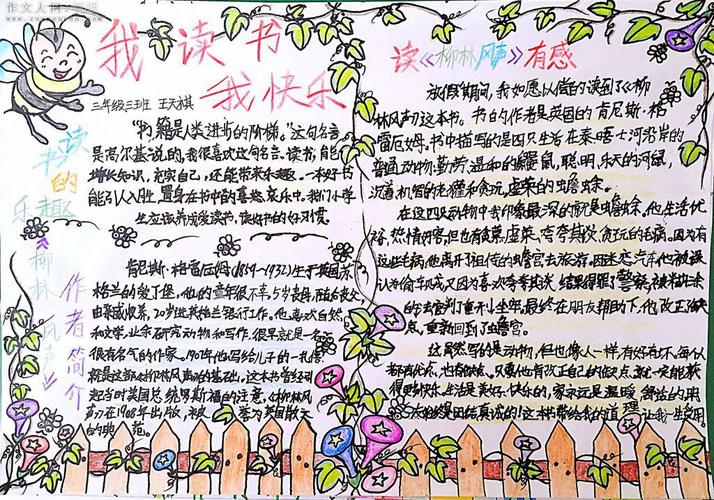 作文人网
我读书
我快乐
三年级三班 王天祺
读书的
乐趣
"书籍是人类进步的阶梯。"这句名言
是高尔基说的,我很喜欢这句名言。读书,能
增长知识,充实自己,还能带来乐趣。一本好书
能引人入胜,置身在书中的喜怒哀乐中。我们小学
生应该养成爱读书,读好书的好习惯。
《柳林风声》
作者简介
肯尼斯·格雷厄姆(1859~1932)生于英国苏
格兰的爱丁堡,他的童年很不幸,5岁丧母,随后丧父,
由亲戚收养,20岁进英格兰银行工作。他喜欢自然
和文学,业余研究动物和写作,很早就是一名
很有名气的作家。1907年他写给儿子的一札信
就是这部《柳林风声》的基础,这本书曾经引
起当时美国总统罗斯福的注意。《柳林风
声》在1908年出版,被誉为英国散文
的典范。
读《柳林风声》有感
放假期间,我如愿以偿的读到了《柳
林风声》这本书。书的作者是英国的肯尼斯·格
雷厄姆。书中描写的是四只生活在泰晤士河沿岸的
普通动物:勤劳、温和的鼹鼠,聪明、乐天的河鼠,
沉着、机智的老獾和贪玩、虚荣的蟾蜍。
在这四只动物中我印象最深的就是蟾蜍。他生活优
裕,热情好客,但也有爱慕虚荣、夸夸其谈、贪玩的毛病。因为有
这些毛病,他离开祖传的蟾宫去旅游,因迷恋汽车,他被误
认为偷车贼,又因为喜欢夸夸其谈,结果得罪了警察,被
法官判了重刑坐牢。最终在朋友帮助下,他改正缺
点,重新回到了蟾宫。
这虽然写的是动物,但也像人一样,有好有坏。每个人
都有优点,也有缺点。只要他肯改正自己的缺点,就一定能获
得更多快乐。生活是美好、快乐的,家永远是温暖、舒适的,朋
友永远是团结真诚的!这本书带给我的道理,让我一生受用。